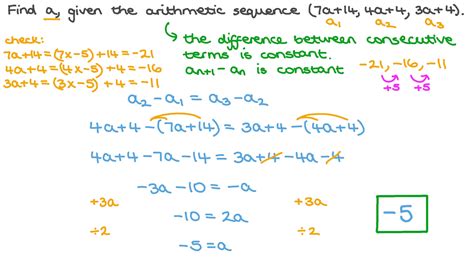 Find a, given the arithmetic sequence (7a+14, 4a+4, 3a+4).
a₁ a₂ a₃
the difference between consecutive
terms is constant.
aₙ₊₁ - aₙ is constant
check:
7a+14 = (7x-5)+14 = -21
4a+4 = (4x-5)+4 = -16
3a+4 = (3x-5)+4 = -11
-21, -16, -11
+5 +5
a₂ - a₁ = a₃ - a₂
4a+4 - (7a+14) = 3a+4 - (4a+4)
4a+4 - 7a - 14 = 3a + 4 - 4a - 4
-3a - 10 = -a
+3a +3a
-10 = 2a
÷2 ÷2
-5 = a
-5